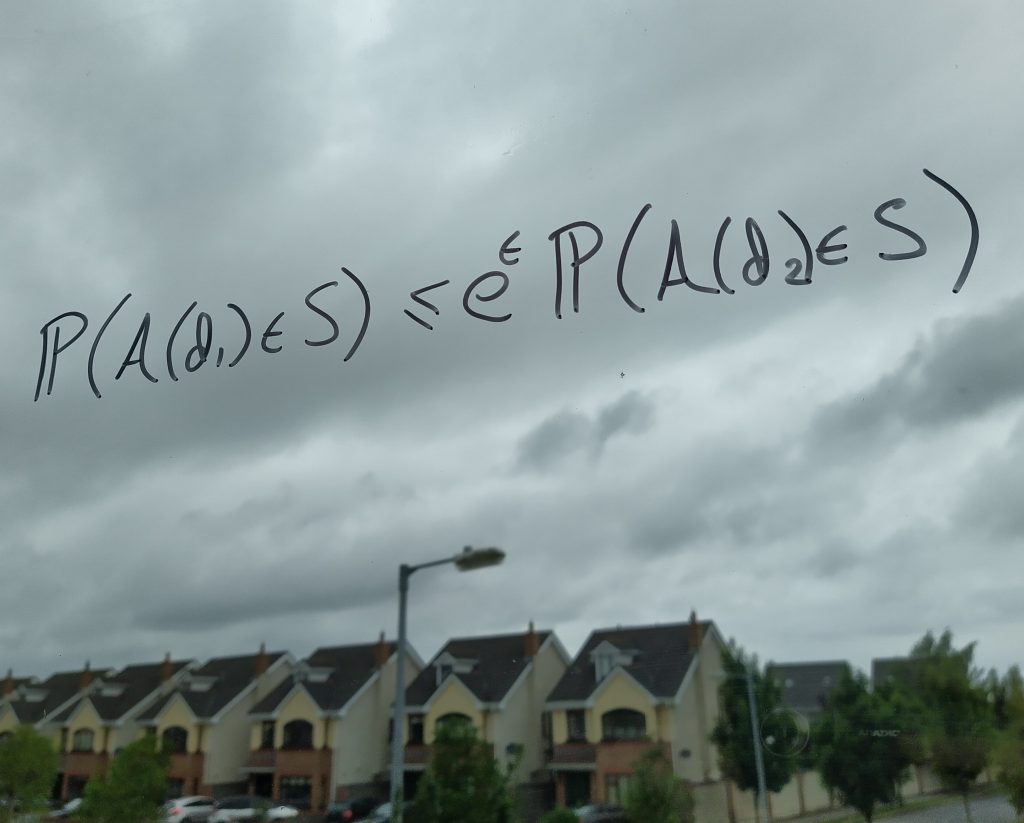 ℙ(A(d₁)∈S) ≤ e^ϵ ℙ(A(d₂)∈S)